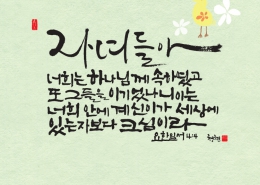 자녀들아
너희는 하나님께 속하였고
또 그들을 이기었나니 이는
너희 안에 계신 이가 세상에
있는 자보다 크심이라
요한일서 4:4